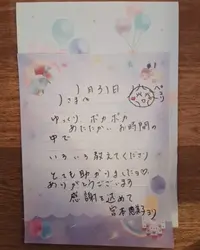 1月31日
うさぎへ
ペコリ
ゆっくり、ポカポカ
あたたかい お時間の
中で
いろいろ教えてくださり
とても助かりました♡
ありがとうございます
感謝を込めて
宮本
より